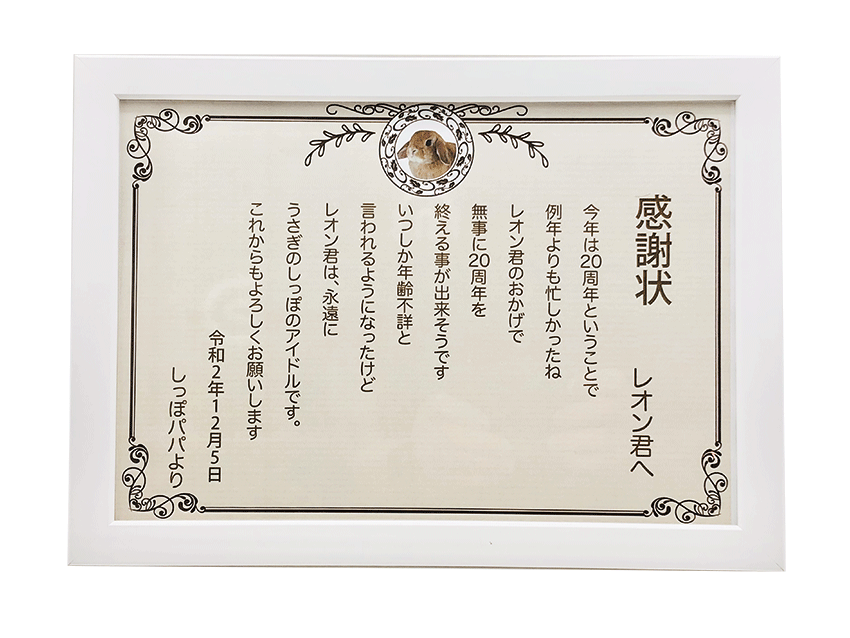 感謝状
レオン君へ
今年は20周年ということで
例年よりも忙しかったね
レオン君のおかげで
無事に20周年を
終える事が出来そうです
いつしか年齢不詳と
言われるようになったけど
レオン君は、永遠に
うさぎのしっぽのアイドルです。
これからもよろしくお願いします
令和2年12月5日
しっぽパパより